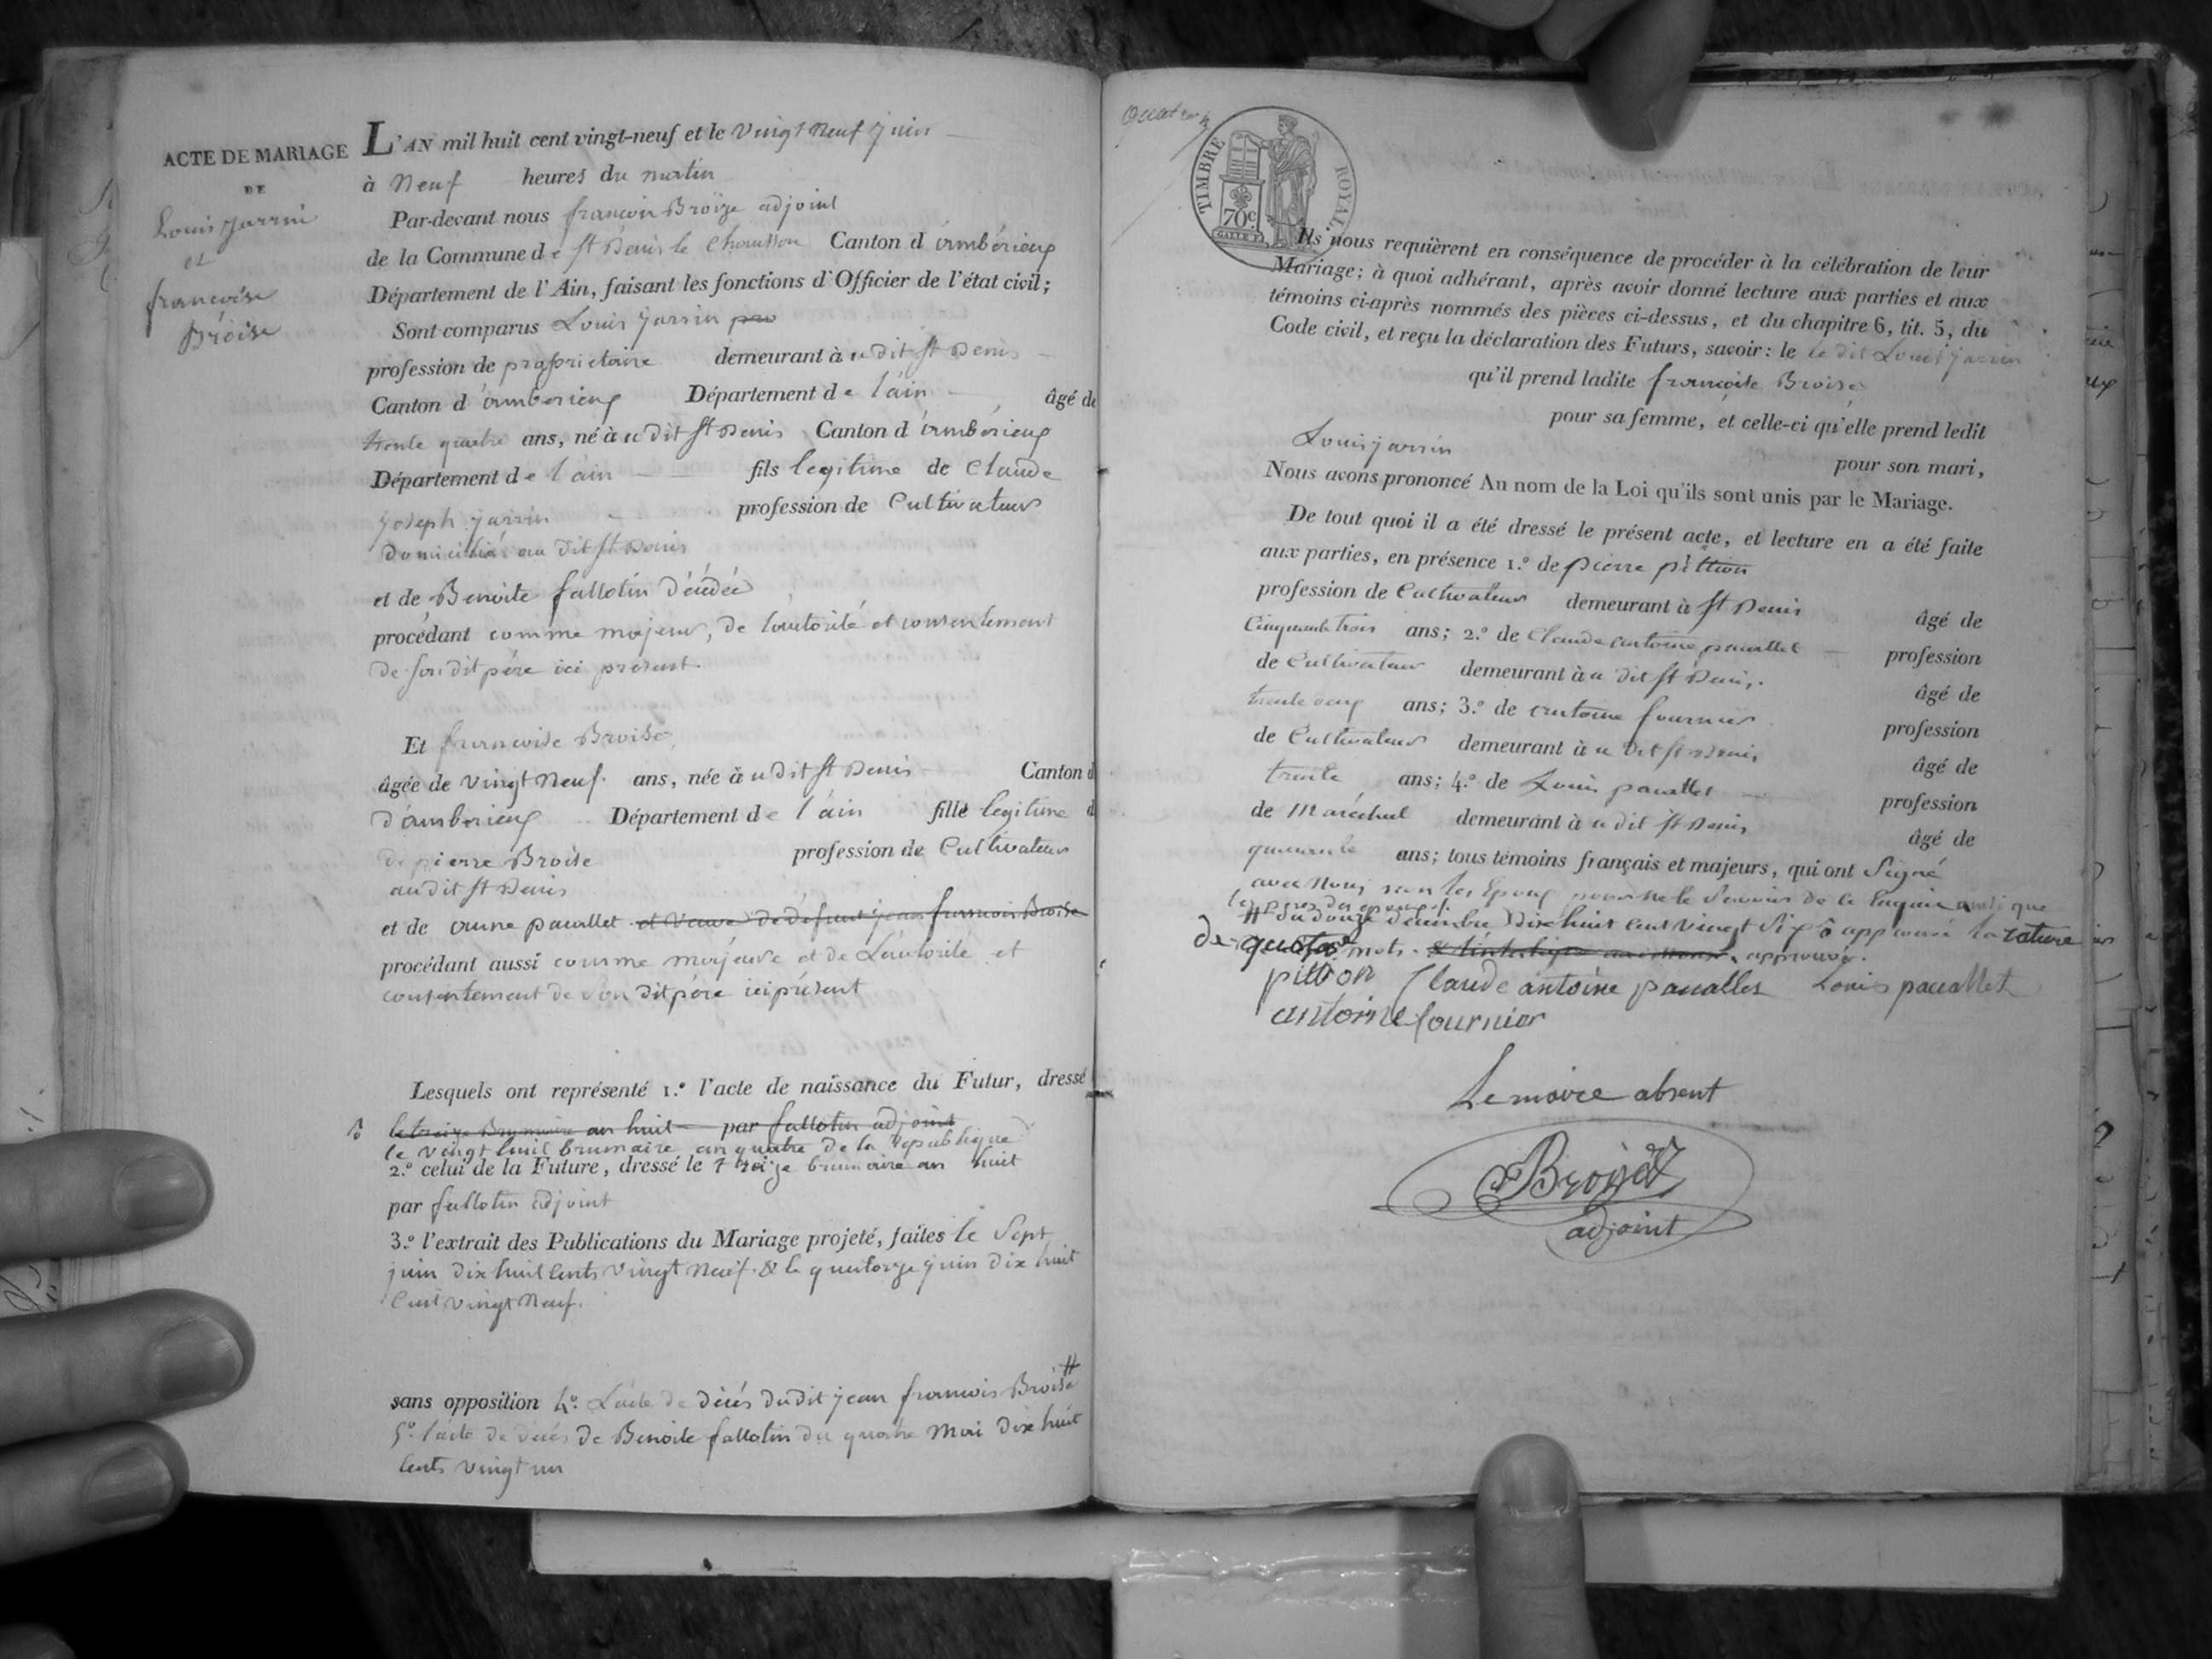 ACTE DE MARIAGE
DE
Louis Jarrin
et
francoise
Broise
L'AN mil huit cent vingt-neuf et le vingt Neuf juin
à Neuf heures du matin
Par-devant nous francois Broize adjoint
de la Commune de st Denis le Chausson Canton d'ambérieux
Département de l'Ain, faisant les fonctions d'Officier de l'état civil;
Sont comparus Louis jarrin pro
profession de proprietaire demeurant à udit st Denis
Canton d'ambérieux Département de l'ain âgé de
trente quatre ans, né à udit st Denis Canton d'ambérieux
Département de l'ain fils legitime de Claude
joseph jarrin profession de Cultivateur
domicilié au dit st Denis
et de Benoite fallotin décédée
procédant comme majeur, de l'autorité et consentement
de son dit père ici présent.
Et francoise Broise
âgée de vingt Neuf ans, née à udit st Denis Canton d
d'amberieux Département de l'ain fille legitime d
de pierre Broise profession de Cultivateur
audit st Denis
et de anne pauallet et veuve de defunt jean francois Broise
procédant aussi comme majeure et de L'autorité et
consentement de son dit père ici présent
Lesquels ont représenté 1.º l'acte de naissance du Futur, dressé
le treize Brumaire an huit par fallotin adjoint
le vingt huit brumaire an quatre de la republique
2.º celui de la Future, dressé le treize brumaire an huit
par fallotin adjoint
3.º l'extrait des Publications du Mariage projeté, faites le Sept
juin dix huit Cents vingt Neuf & le quatorze juin dix huit
Cent vingt Neuf.
sans opposition 4º. L'acte de décés dudit jean francois Broise #
5º. l'acte de décés de Benoite fallotin du quatre Mai dix huit
Cents vingt un
TIMBRE ROYAL
70c
Ils nous requièrent en conséquence de procéder à la célébration de leur
Mariage; à quoi adhérant, après avoir donné lecture aux parties et aux
témoins ci-après nommés des pièces ci-dessus, et du chapitre 6, tit. 5, du
Code civil, et reçu la déclaration des Futurs, savoir: le le dit Louis jarrin
qu'il prend ladite françoise Broise
pour sa femme, et celle-ci qu'elle prend ledit
Louis jarrin pour son mari,
Nous avons prononcé Au nom de la Loi qu'ils sont unis par le Mariage.
De tout quoi il a été dressé le présent acte, et lecture en a été faite
aux parties, en présence 1.º de pierre pittion
profession de Cultivateur demeurant à st Denis âgé de
Cinquante trois ans; 2.º de Claude antoine pauallet profession
de Cultivateur demeurant à u dit st Denis, âgé de
trente deux ans; 3.º de antoine fournier profession
de Cultivateur demeurant à u dit st Denis âgé de
trente ans; 4.º de Louis pauallet profession
de Maréchal demeurant à u dit st Denis âgé de
quarante ans; tous témoins français et majeurs, qui ont Signé
avec Nous
les peres des epoux.
# du douze décembre dix huit cent vingt Six approuvé la rature
de mots approuvé.
pittion Claude antoine pauallet Louis pauallet
antoine fournier
Le maire absent
Broize
adjoint